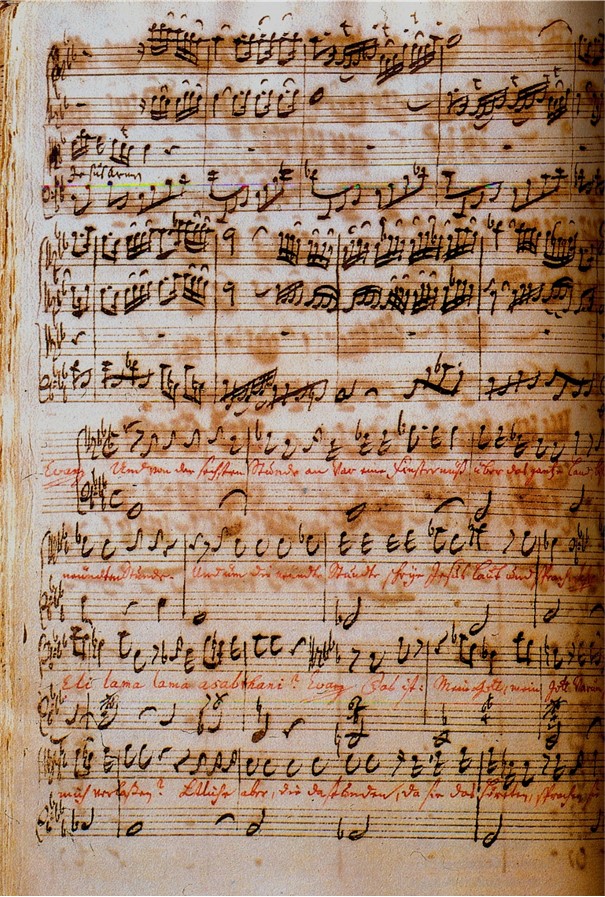 Jesus Armen
Evang Und von der sechsten Stunde an war eine Finsternuß über das gantze Land
neundten Stunde. Und um die neundte Stunde schrye Jesus laut und sprach
Eli lama lama asabthani? Evang Das ist: Mein Gott, mein Gott warum
mich verlaßen? Etliche aber, die da stunden, da sie das höreten, sprachen